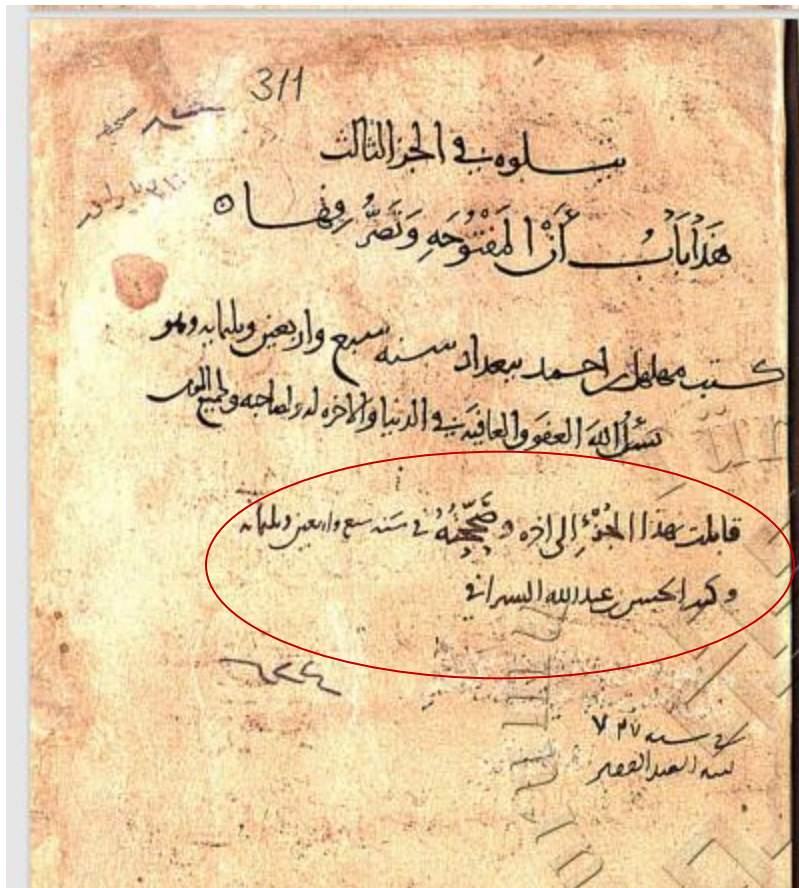 311
يتـــلوه في الجز الثالث
هَذَا بَابُ أَنْ المَفْتُوحَهِ وَتَصَرُّفِهَا
كتب مهلهل بن احمد ببغداد سنه سبع واربعين وثلثمايه وهو
يسئل الله العفو والعافيه في الدنيا والاخره له ولصاحبه ولجميع
قابلت بهذا الجُزْءِ إِلى اخره وصَحَّحْتُهُ في سَنه سبع واربعين وثلثمايه
وكتب الحسن بن عبد الله السيرافي
في سنه
العبد الفقير